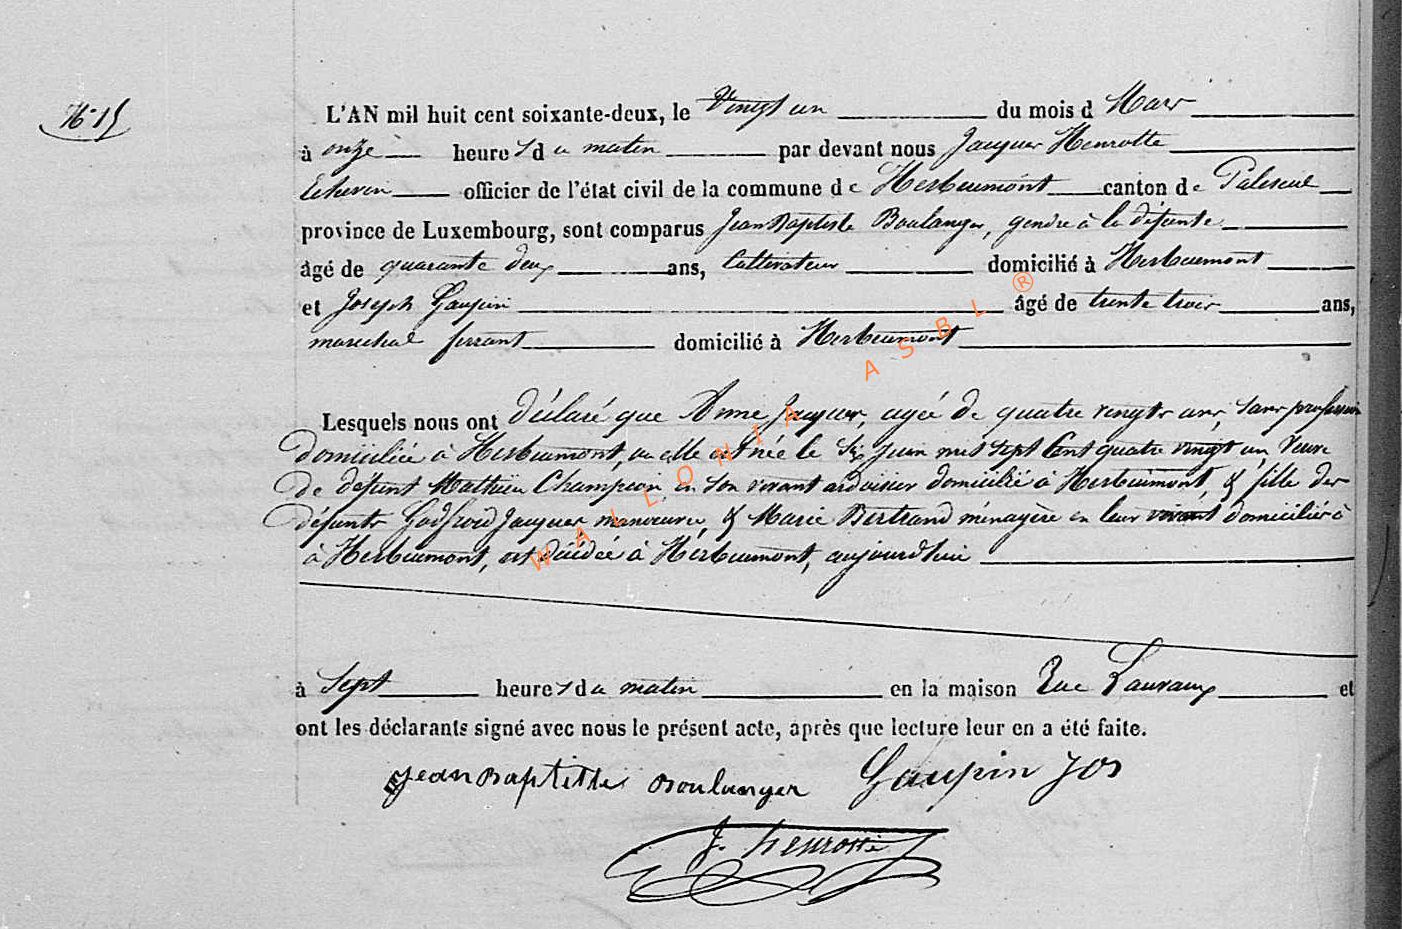 N° 15
L'AN mil huit cent soixante-deux, le Vingt un du mois d Mars
à onze heures du matin par devant nous Jacques Henrotte
Echevin officier de l'état civil de la commune de Herbeumont canton de Paliseul
province de Luxembourg, sont comparus Jean Baptiste Boulanger, gendre à la défunte
âgé de quarante deux ans, Cultivateur domicilié à Herbeumont
et Joseph Gaupin âgé de trente trois ans,
marechal ferrant domicilié à Herbeumont
Lesquels nous ont déclaré que Anne Jacques, agée de quatre vingts ans, sans profession
domiciliée à Herbeumont, ou elle est née le six juin mil sept Cent quatre vingt un, Veuve
de defunt Mathieu Champion en son vivant ardoisier domicilié à Herbeumont, & fille des
défunts Godfroid Jacques manoeuvre, & Marie Bertrand ménagère en leur vivant domiciliés à
à Herbeumont, est décédée à Herbeumont, aujourd'hui
à Sept heures du matin en la maison Rue Lauvaux et
ont les déclarants signé avec nous le présent acte, après que lecture leur en a été faite.
Jean Baptiste Boulanger Gaupin Jos
J. Henrotte
WALLONIA ASBL ®